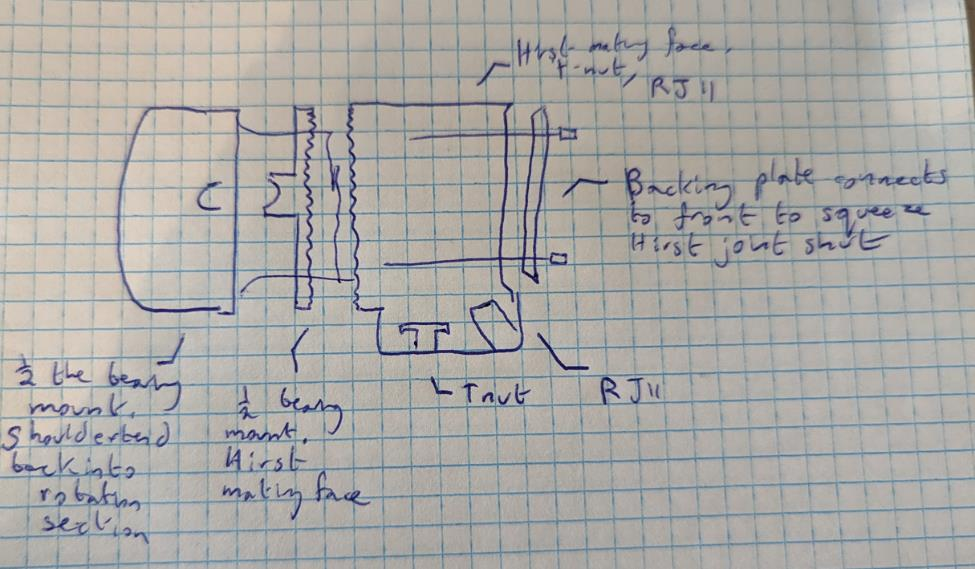 Hirst mating face,
T-nut,
RJ11
Backing plate connects
to front to squeeze
Hirst joint shut
C
Tnut
RJ11
1/2 the bearing
mount.
Should extend
back into
rotating
section
1/2 bearing
mount.
Hirst
mating face